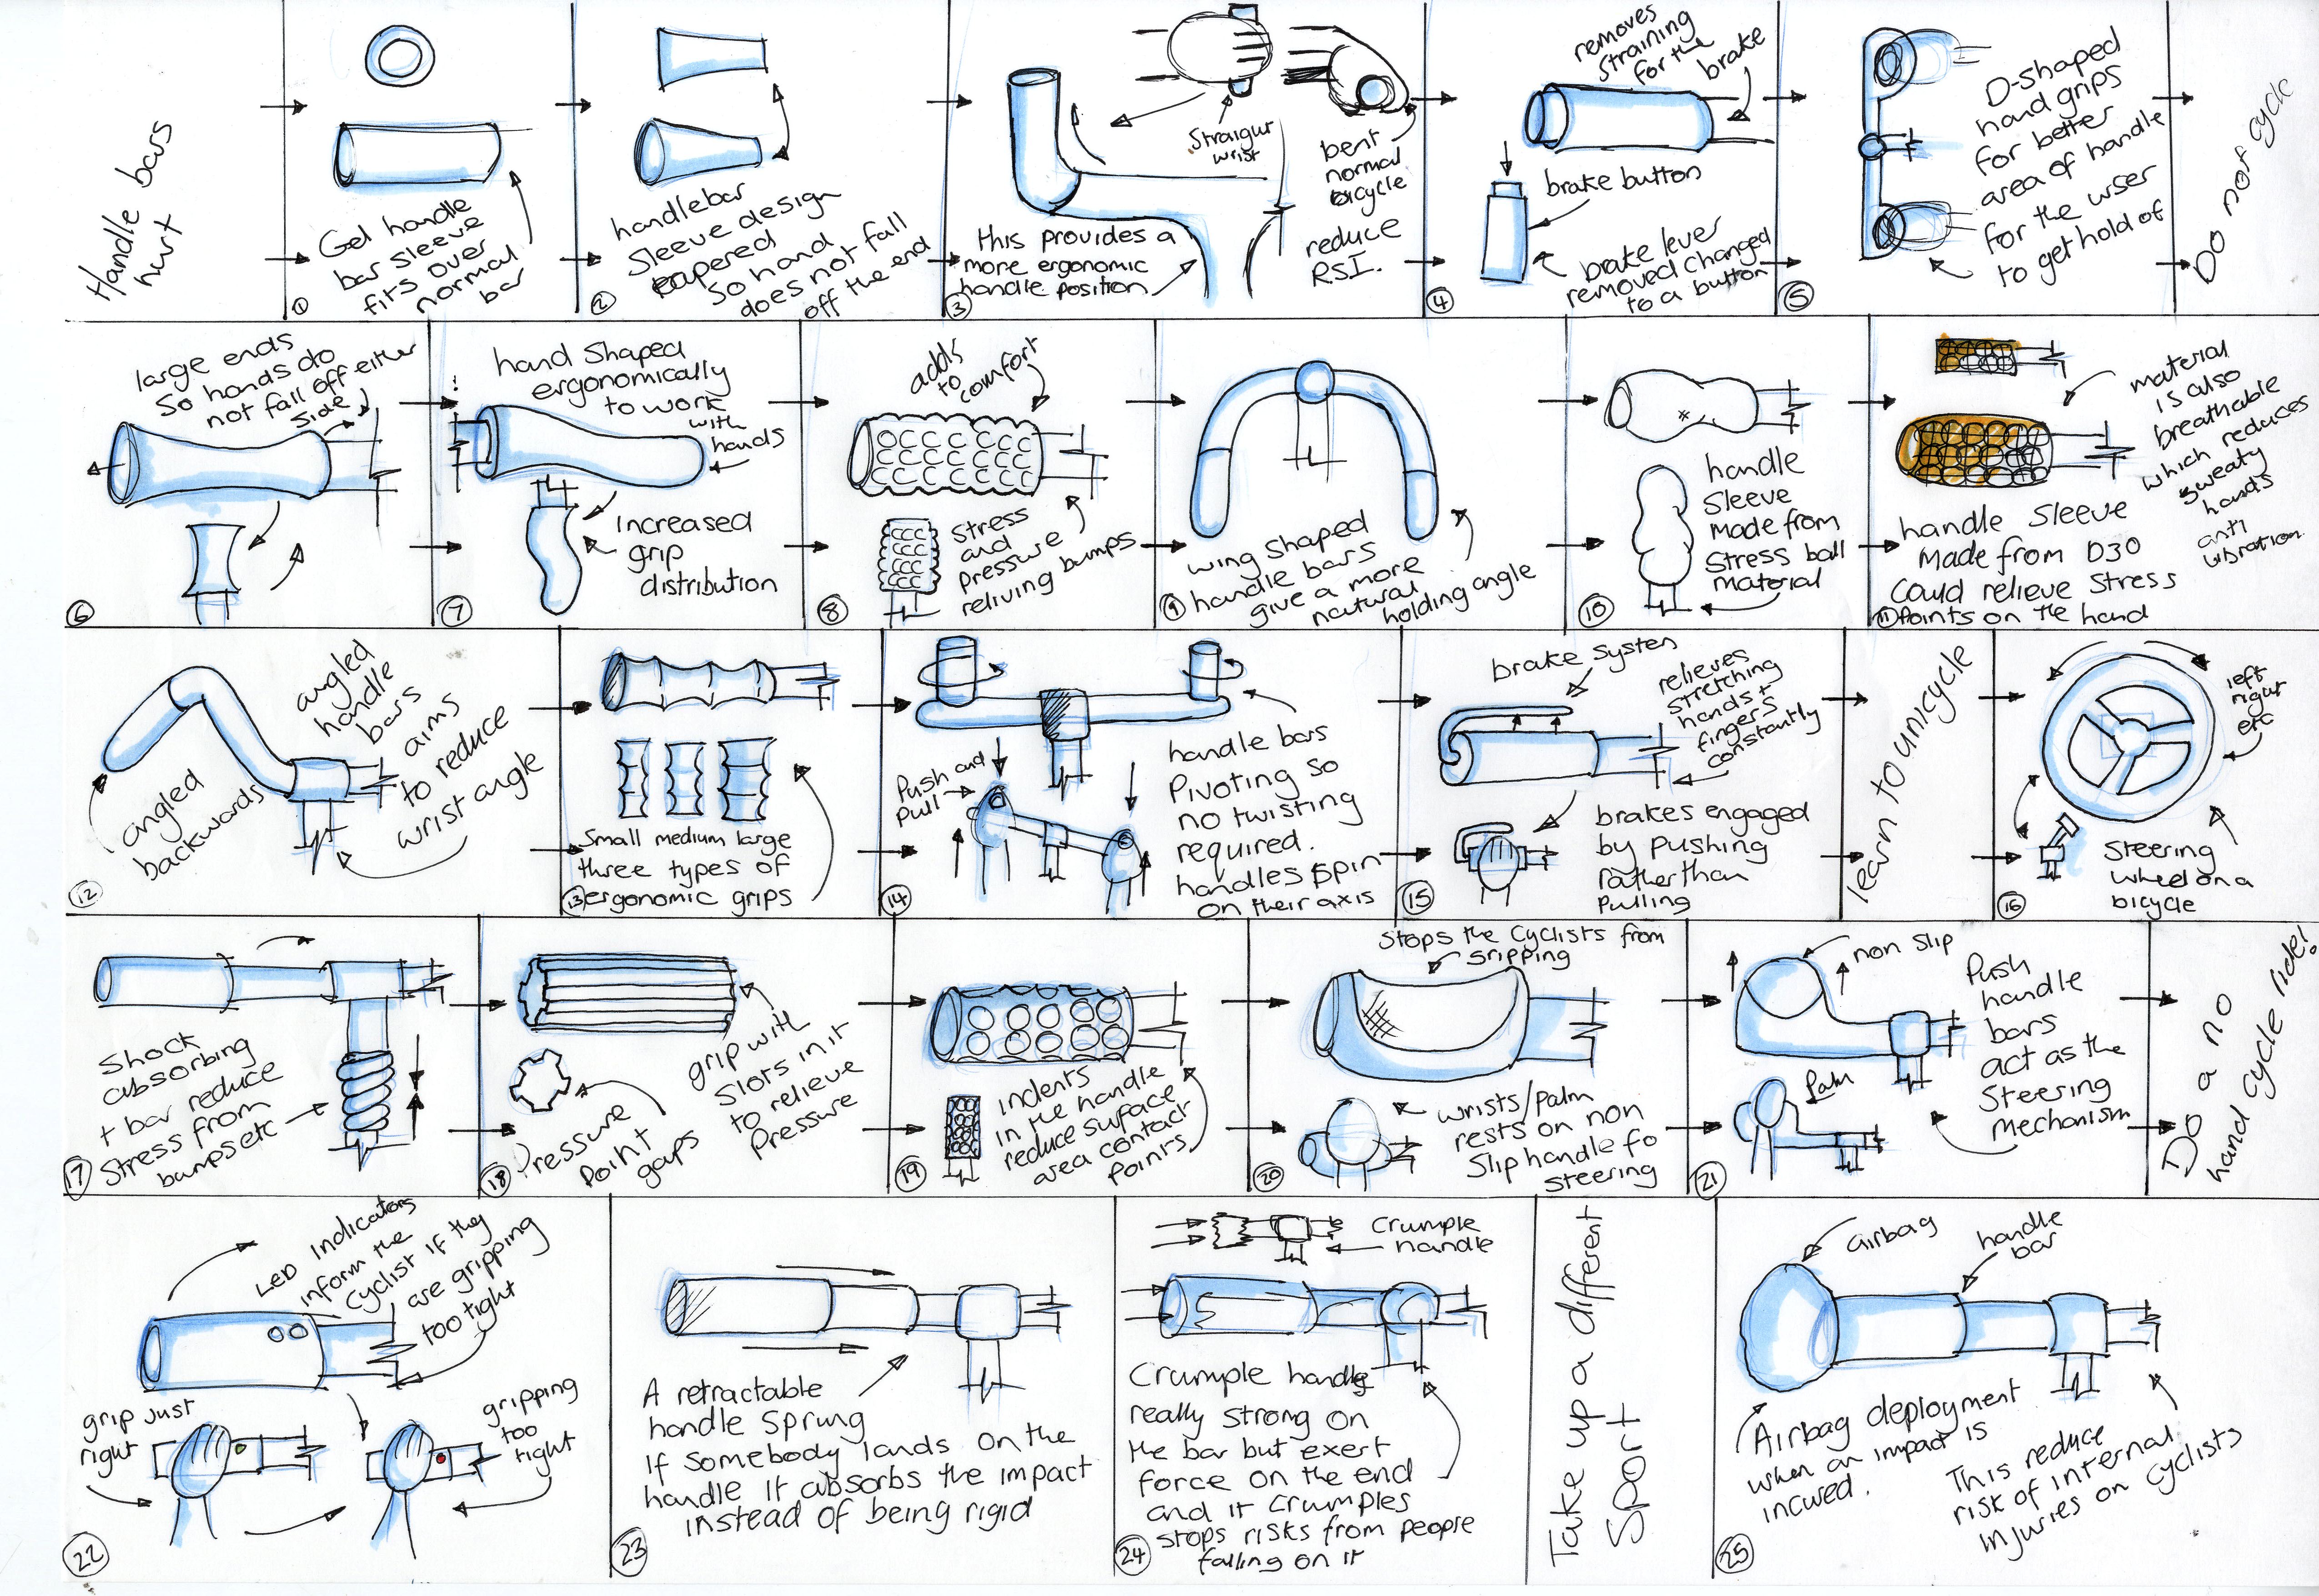 Handle bars
hurt
Gel handle
bar sleeve
fits over
normal
bar
1
handlebar
Sleeve design
tapered
so hand
does not fall
off the end
2
Straight
wrist
bent
normal
bicycle
this provides a
more ergonomic
handle position
reduce
R.S.I.
3
removes
straining
for the
brake
brake button
brake lever
removed changed
to a button
4
D-shaped
hand grips
for better
area of handle
for the user
to get hold of
5
Do not cycle
large ends
so hands do
not fall off either
side
6
hand Shaped
ergonomically
to work
with
hands
increased
grip
distribution
7
adds
to
comfort
Stress
and
pressure
reliving bumps
8
wing shaped
handle bars
give a more
natural
holding angle
9
handle
Sleeve
Made from
Stress ball
material
10
material
is also
breathable
which reduces
sweaty
hands
anti
vibration
handle Sleeve
Made from D30
Could relieve Stress
Points on the hand
11
angled
handle
bars
aims
to reduce
wrist angle
angled
backwards
12
Small medium large
three types of
ergonomic grips
13
Push and
pull
handle bars
Pivoting so
no twisting
required.
handles spin
on their axis
14
brake system
relieves
stretching
hands +
fingers
constantly
brakes engaged
by pushing
rather than
Pulling
15
learn to unicycle
left
right
etc
Steering
wheel on a
bicycle
16
Shock
absorbing
+ bar reduce
Stress from
bumps etc
17
grip with
Slots in it
to relieve
Pressure
Pressure
Point
gaps
18
indents
in the handle
reduce surface
area contact
points
19
Stops the Cyclists from
gripping
wrists/palm
rests on non
Slip handle fo
steering
20
non Slip
Push
handle
bars
act as the
Steering
Mechanism
Palm
21
Do a no
hand cycle ride!
LED Indicators
inform the
cyclist if they
are gripping
too tight
grip just
right
gripping
too
tight
22
A retractable
handle Sprung
If Somebody lands on the
handle it absorbs the impact
instead of being rigid
23
Crumple
handle
Crumple handle
really Strong on
the bar but exert
force on the end
and it Crumples
Stops risks from people
falling on it
24
Take up a different
Sport
airbag
handle
bar
Airbag deployment
when an impact is
incured.
This reduce
risk of internal
injuries on cyclists
25